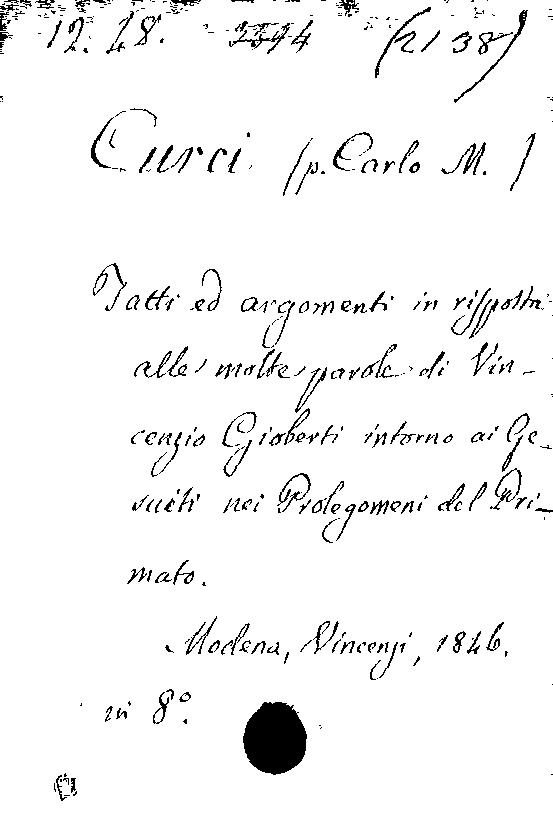 12. 28. 2344 (2138)
Curci (p. Carlo M.)
Fatti ed argomenti in risposta
alle molte parole di Vin-
cenzio Gioberti intorno ai Ge-
suiti nei Prolegomeni del Pri-
mato.
Modena, Vincenzi, 1846.
in 8º.